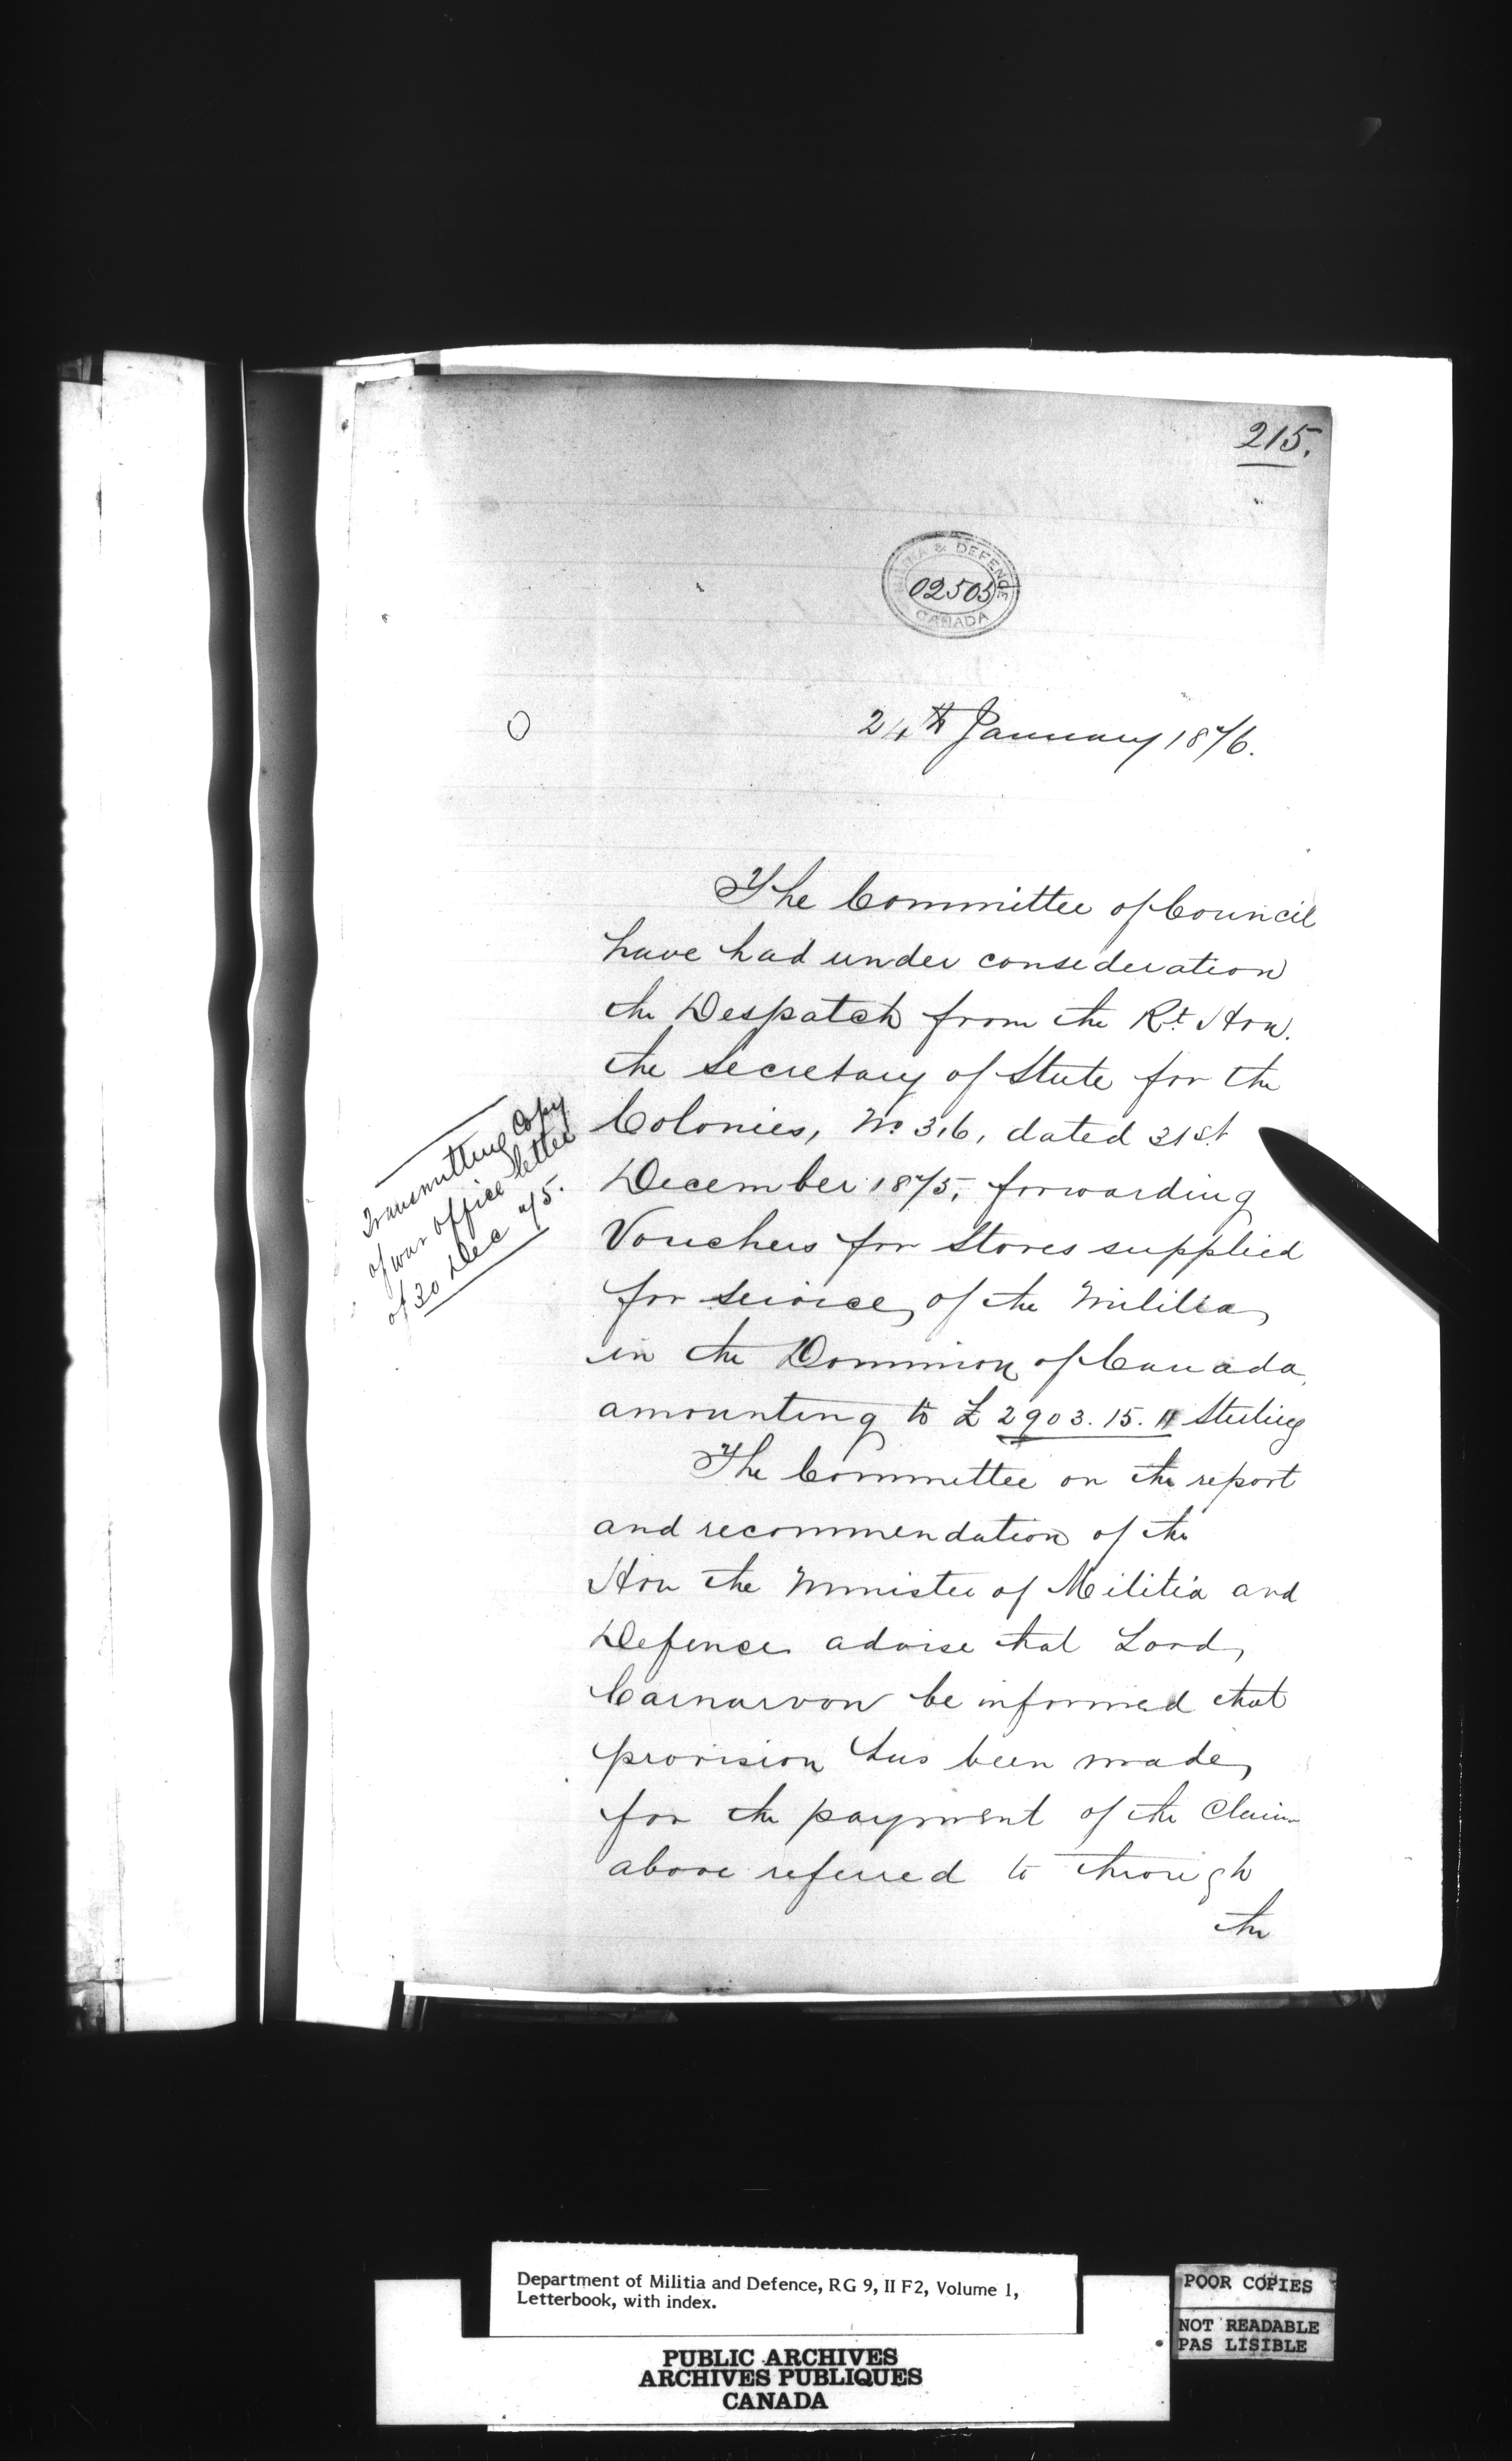 215.
MILITIA & DEFENCE
02505
CANADA
24th January 1876.
The Committee of Council
have had under consideration
the Despatch from the Rt Hon.
the Secretary of State for the
Colonies, No 316, dated 31st
December 1875, forwarding
Vouchers for Stores supplied
for service of the Militia
in the Dominion of Canada,
amounting to £2903.15.11 Sterling
Transmitting Copy
of War Office letter
of 30 Dec 75.
The Committee on the report
and recommendation of the
Hon the Minister of Militia and
Defence advise that Lord
Carnarvon be informed that
provision has been made
for the payment of the Claim
above referred to through
the
Department of Militia and Defence, RG 9, II F2, Volume 1,
Letterbook, with index.
PUBLIC ARCHIVES
ARCHIVES PUBLIQUES
CANADA
POOR COPIES
NOT READABLE
PAS LISIBLE